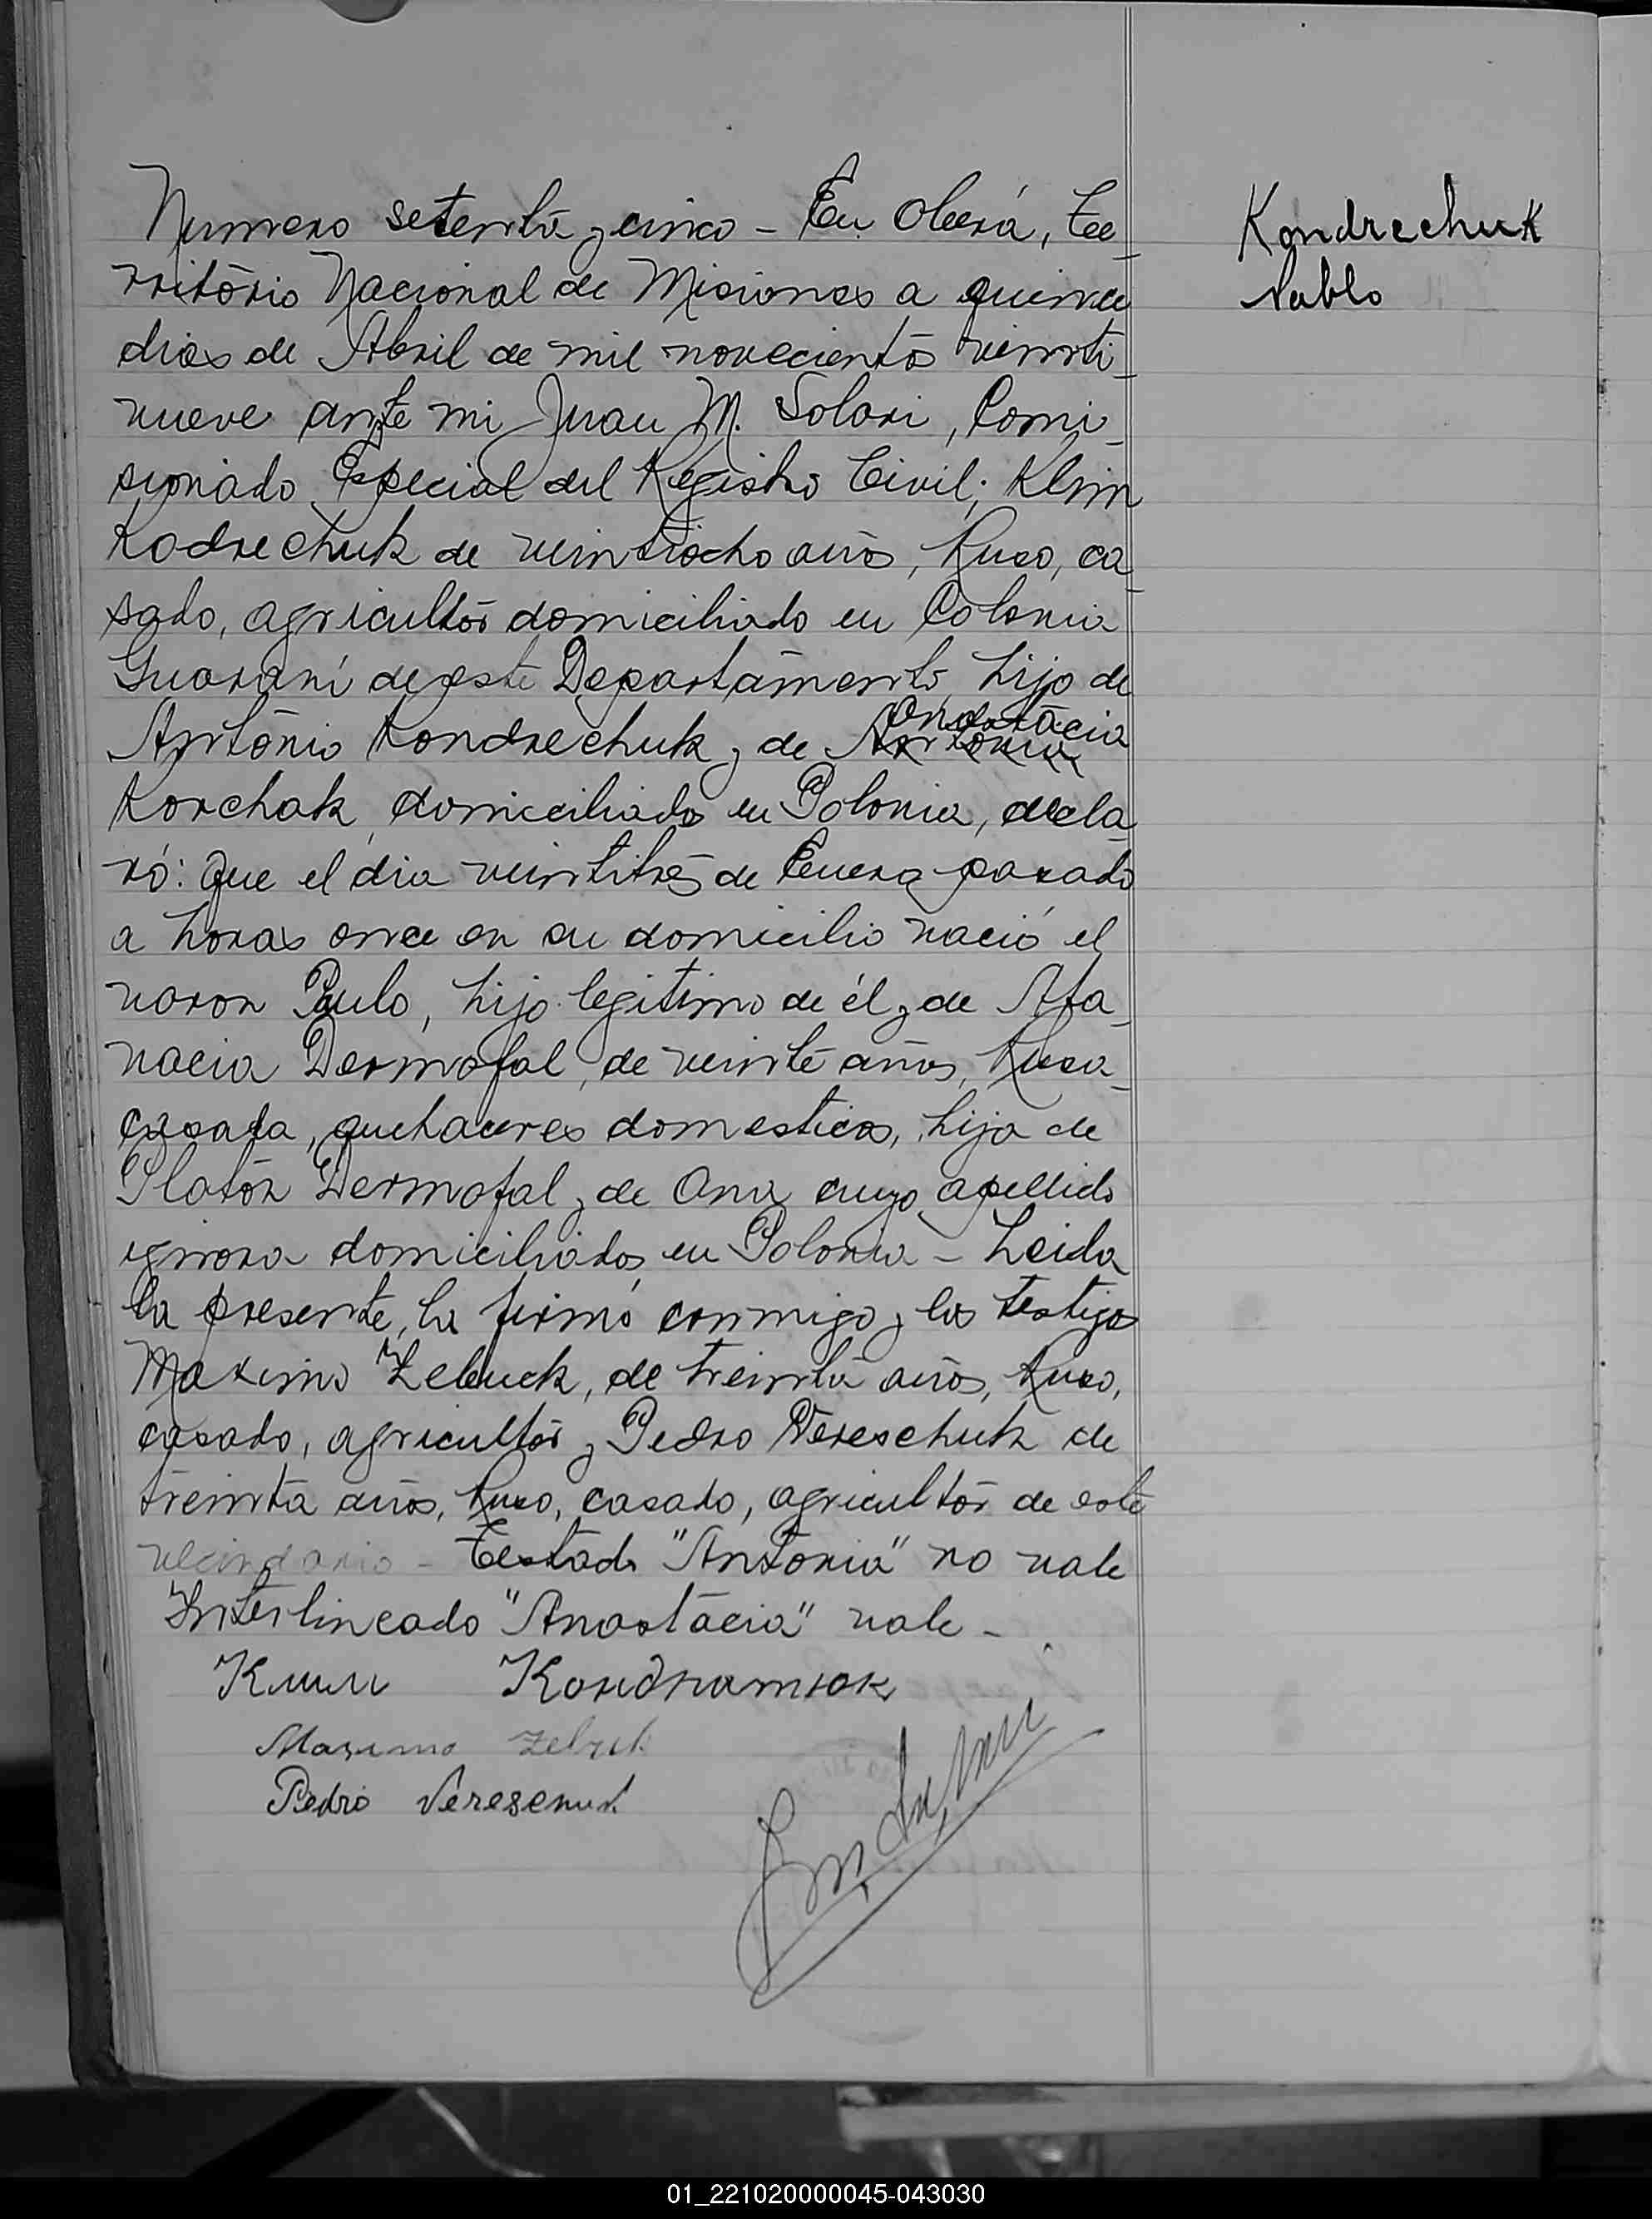 Numero setenta y cinco - En Oberá, Te-
rritorio Nacional de Misiones a quince
dias de Abril de mil novecientos veinti-
nueve ante mi Juan M. Solari, Comi-
sionado Especial del Registro Civil; Klim
Kodrechuk de veintiocho años, Ruso, ca-
sado, agricultor domiciliado en Colonia
Guarani de este Departamento, hijo de
Anastacia
Antonio Kondrechuk y de Antonia
Korchak, domiciliados en Polonia, decla
ró: Que el dia veintitres de Enero pasado
a horas once en su domicilio nació el
varon Paulo, hijo legitimo de él y de Ata-
nacia Dermofal, de veinte años, Rusa-
casada, quehaceres domesticos, hija de
Platón Dermofal y de Ana cuyo apellido
ignora domiciliados en Polonia - Leida
la presente, la firmó conmigo y los testigos
Maximo Zebuck, de treinta años, Ruso,
casado, agricultor y Pedro Vereschuk de
treinta años, Ruso, casado, agricultor de este
vecindario - Testado "Antonia" no vale
Interlineado "Anastacia" vale -
Клим Кондратюк
Maximo Zebuk
Pedro
Kondrechuk
Pablo
01_221020000045-043030